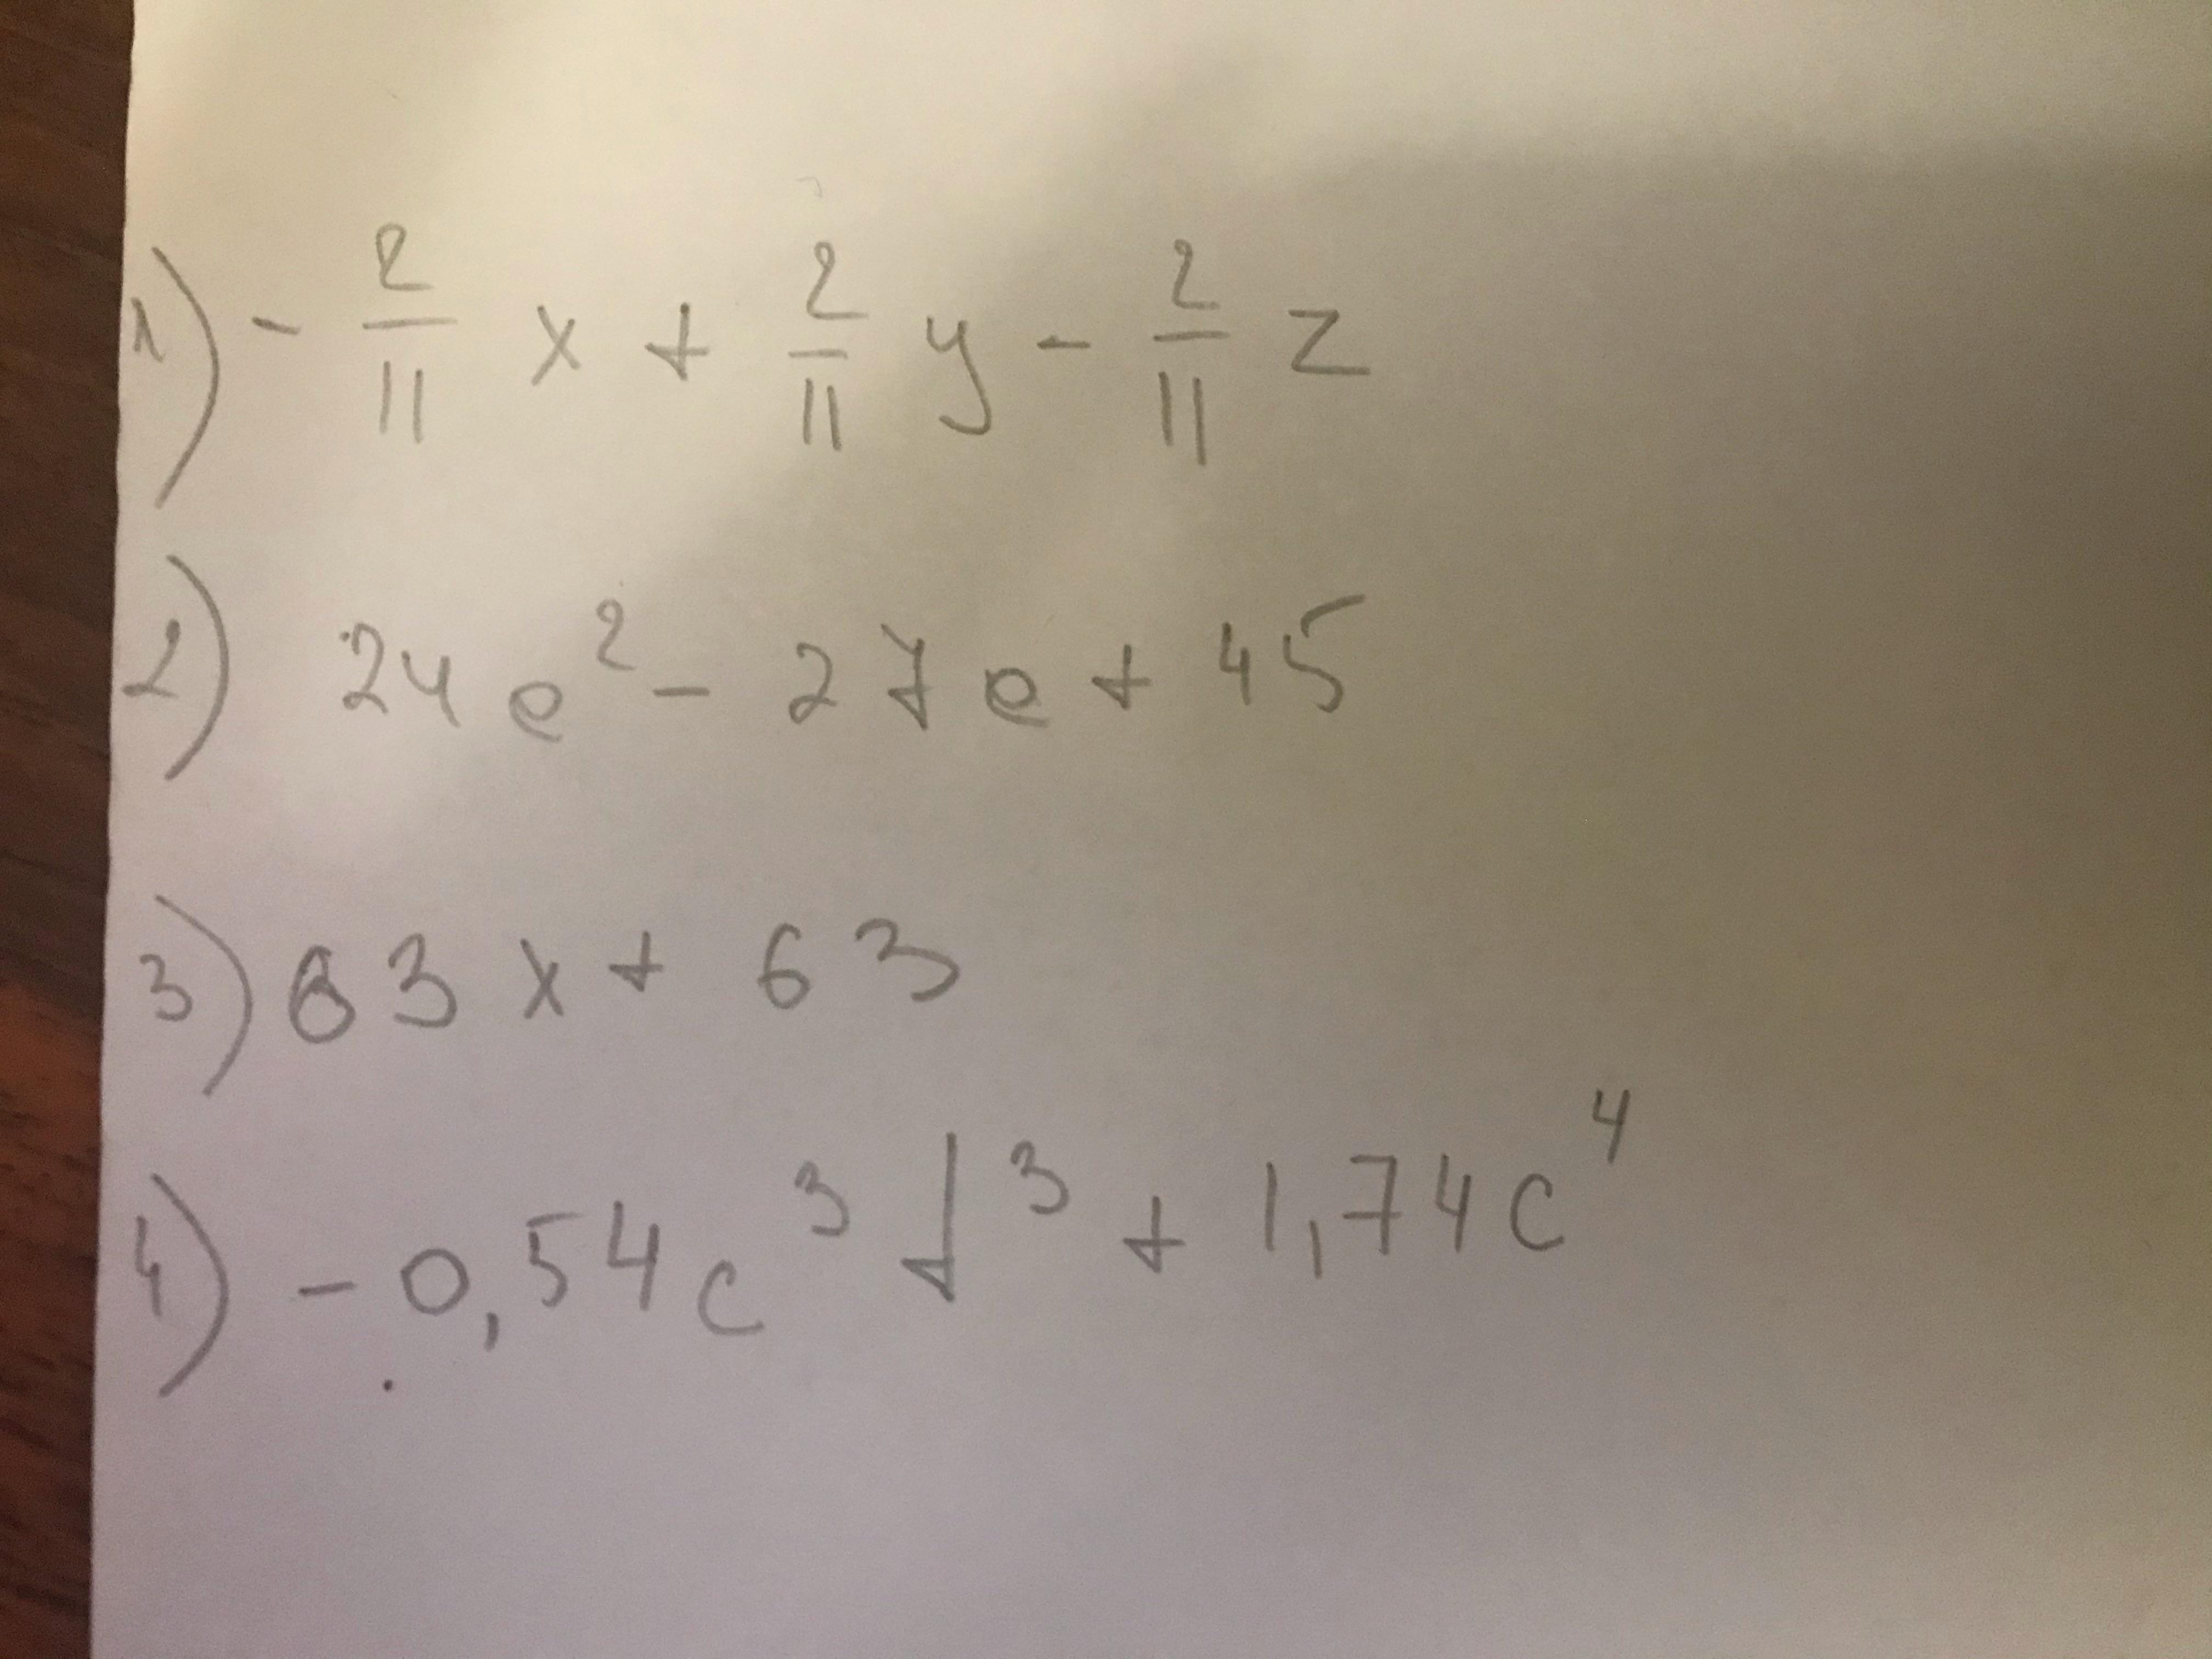 1) - 2/11 x + 2/11 y - 2/11 z
2) 24e² - 27e + 45
3) 63x + 63
4) - 0,54c³d³ + 1,74c⁴